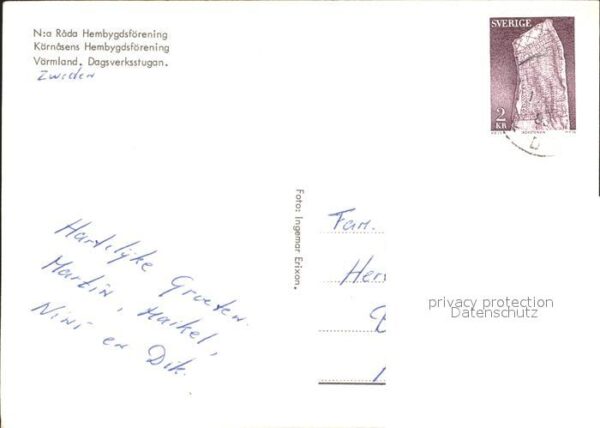 N:a Råda Hembygdsförening
Kärnåsens Hembygdsförening
Värmland, Dagsverksstugan.
Zweden
SVERIGE
2
KR
Foto: Ingemar Erixon.
Hartelijke Groeten.
Martin, Maikel,
Nini en Dik.
Fam.
Her
privacy protection
Datenschutz